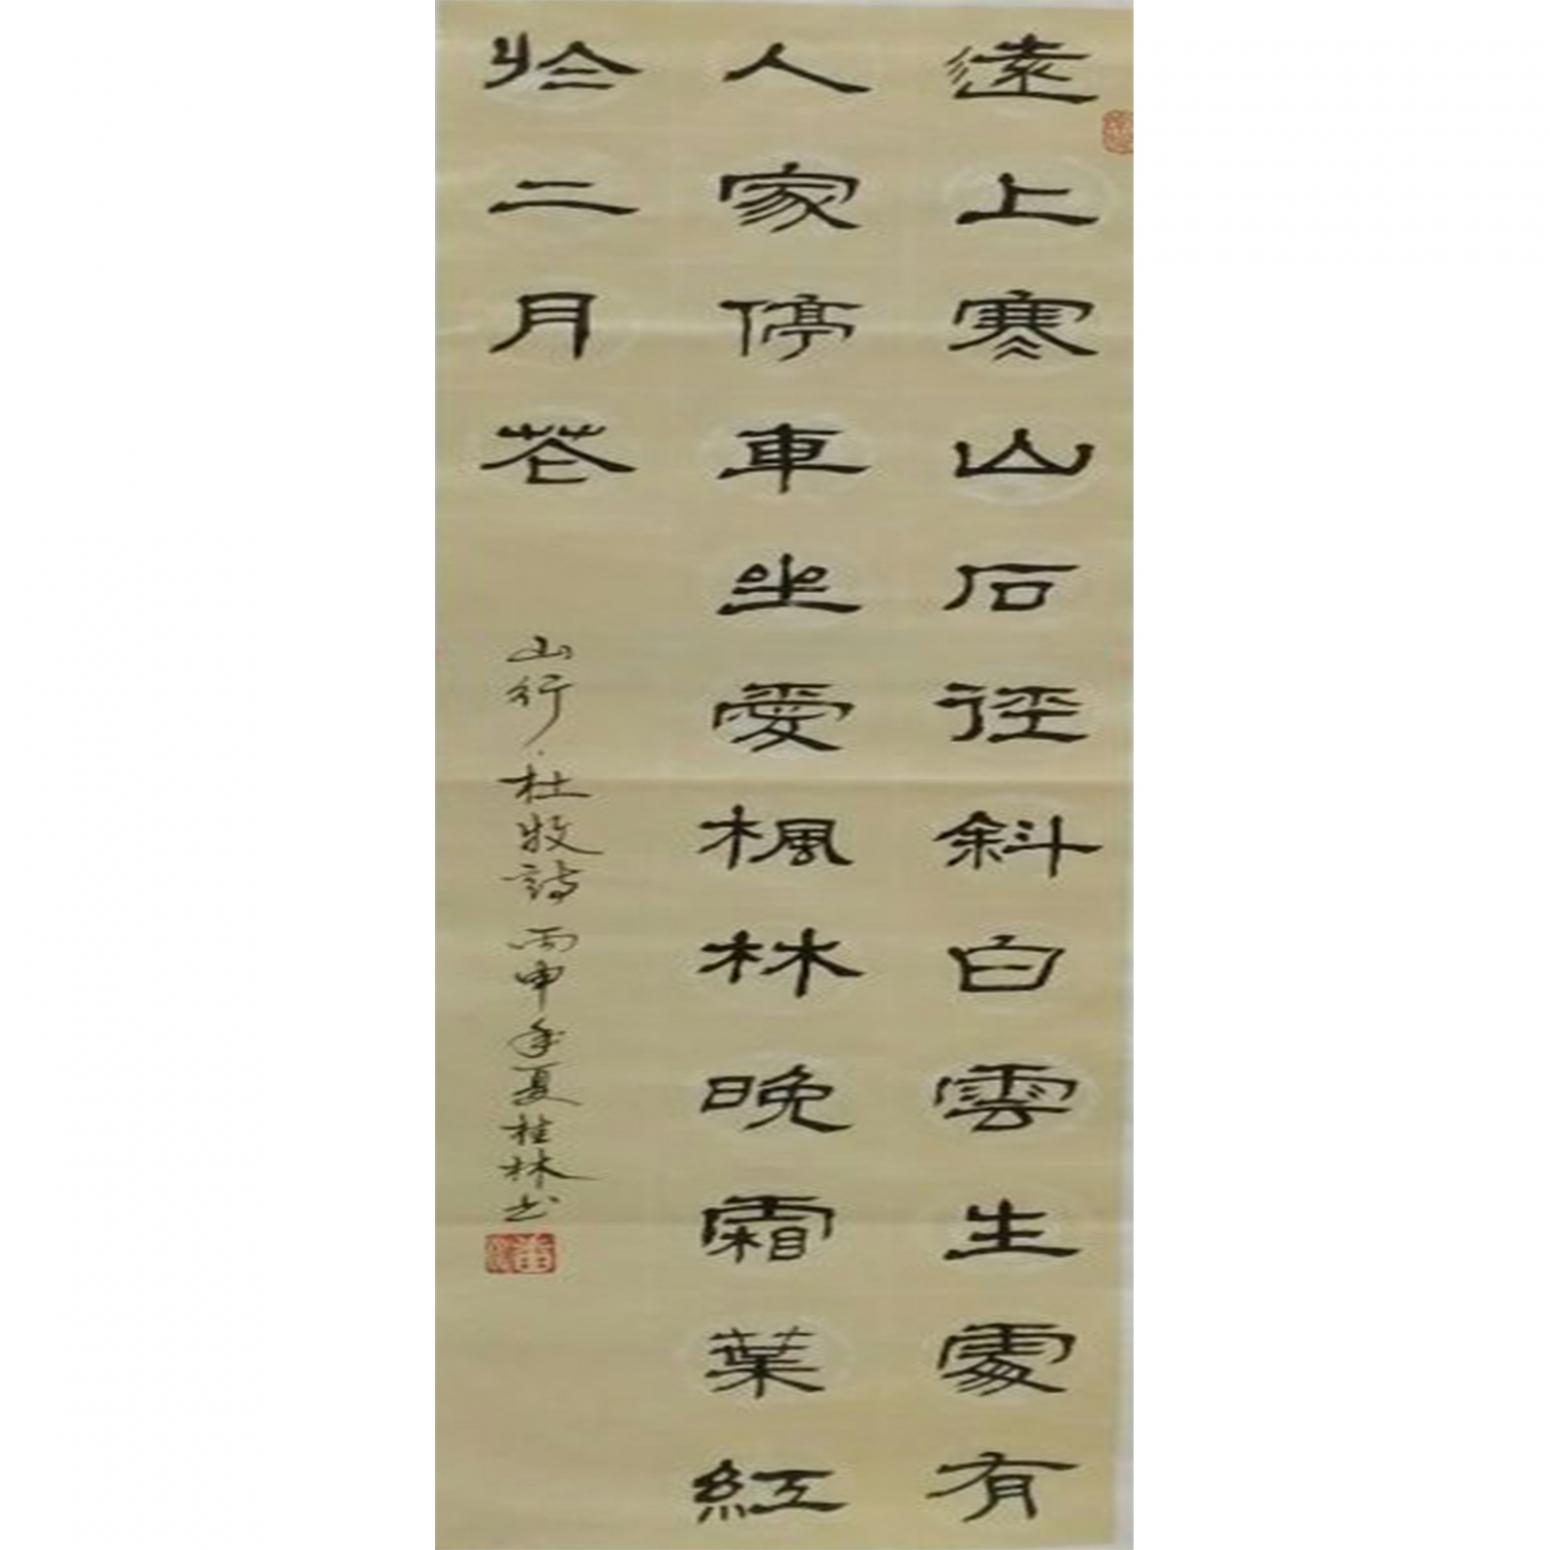 遠上寒山石徑斜白雲生處有
人家停車坐愛楓林晚霜葉紅
於二月花
山行·杜牧詩 丙申年夏桂林书